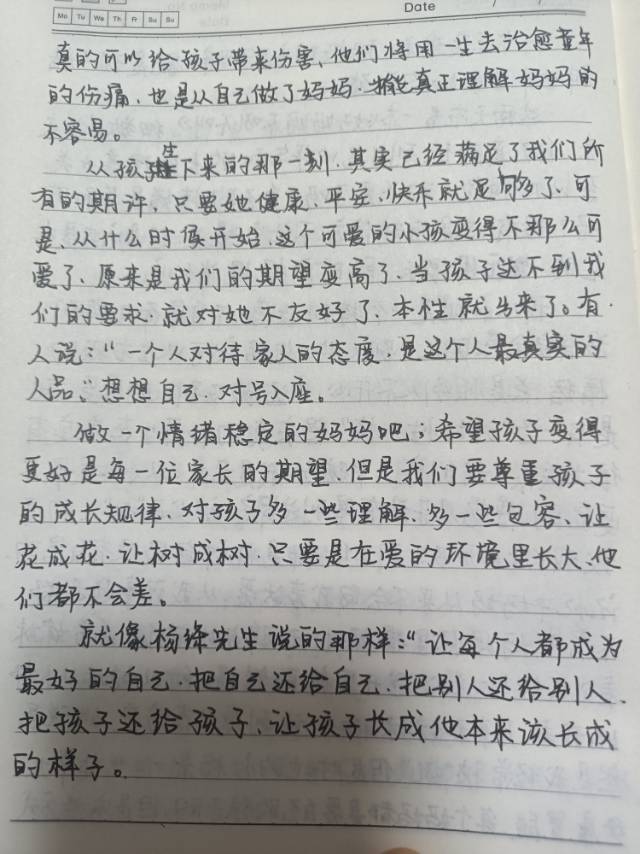 Date
Mo Tu We Th Fr Sa Su
真的可以给孩子带来伤害、他们将用一生去治愈童年
的伤痛、也是从自己做了妈妈、才能真正理解妈妈的
不容易。
从孩子生下来的那一刻、其实已经满足了我们所
有的期许、只要她健康、平安、快乐就足够了、可
是、从什么时候开始、这个可爱的小孩变得不那么可
爱了、原来是我们的期望变高了、当孩子达不到我
们的要求、就对她不友好了、本性就出来了。有
人说：“一个人对待家人的态度、是这个人最真实的
人品、”想想自己、对号入座。
做一个情绪稳定的妈妈吧；希望孩子变得
更好是每一位家长的期望、但是我们要尊重孩子
的成长规律、对孩子多一些理解、多一些包容、让
花成花、让树成树、只要是在爱的环境里长大、他
们都不会差。
就像杨绛先生说的那样：“让每个人都成为
最好的自己、把自己还给自己、把别人还给别人、
把孩子还给孩子、让孩子长成他本来该长成
的样子。